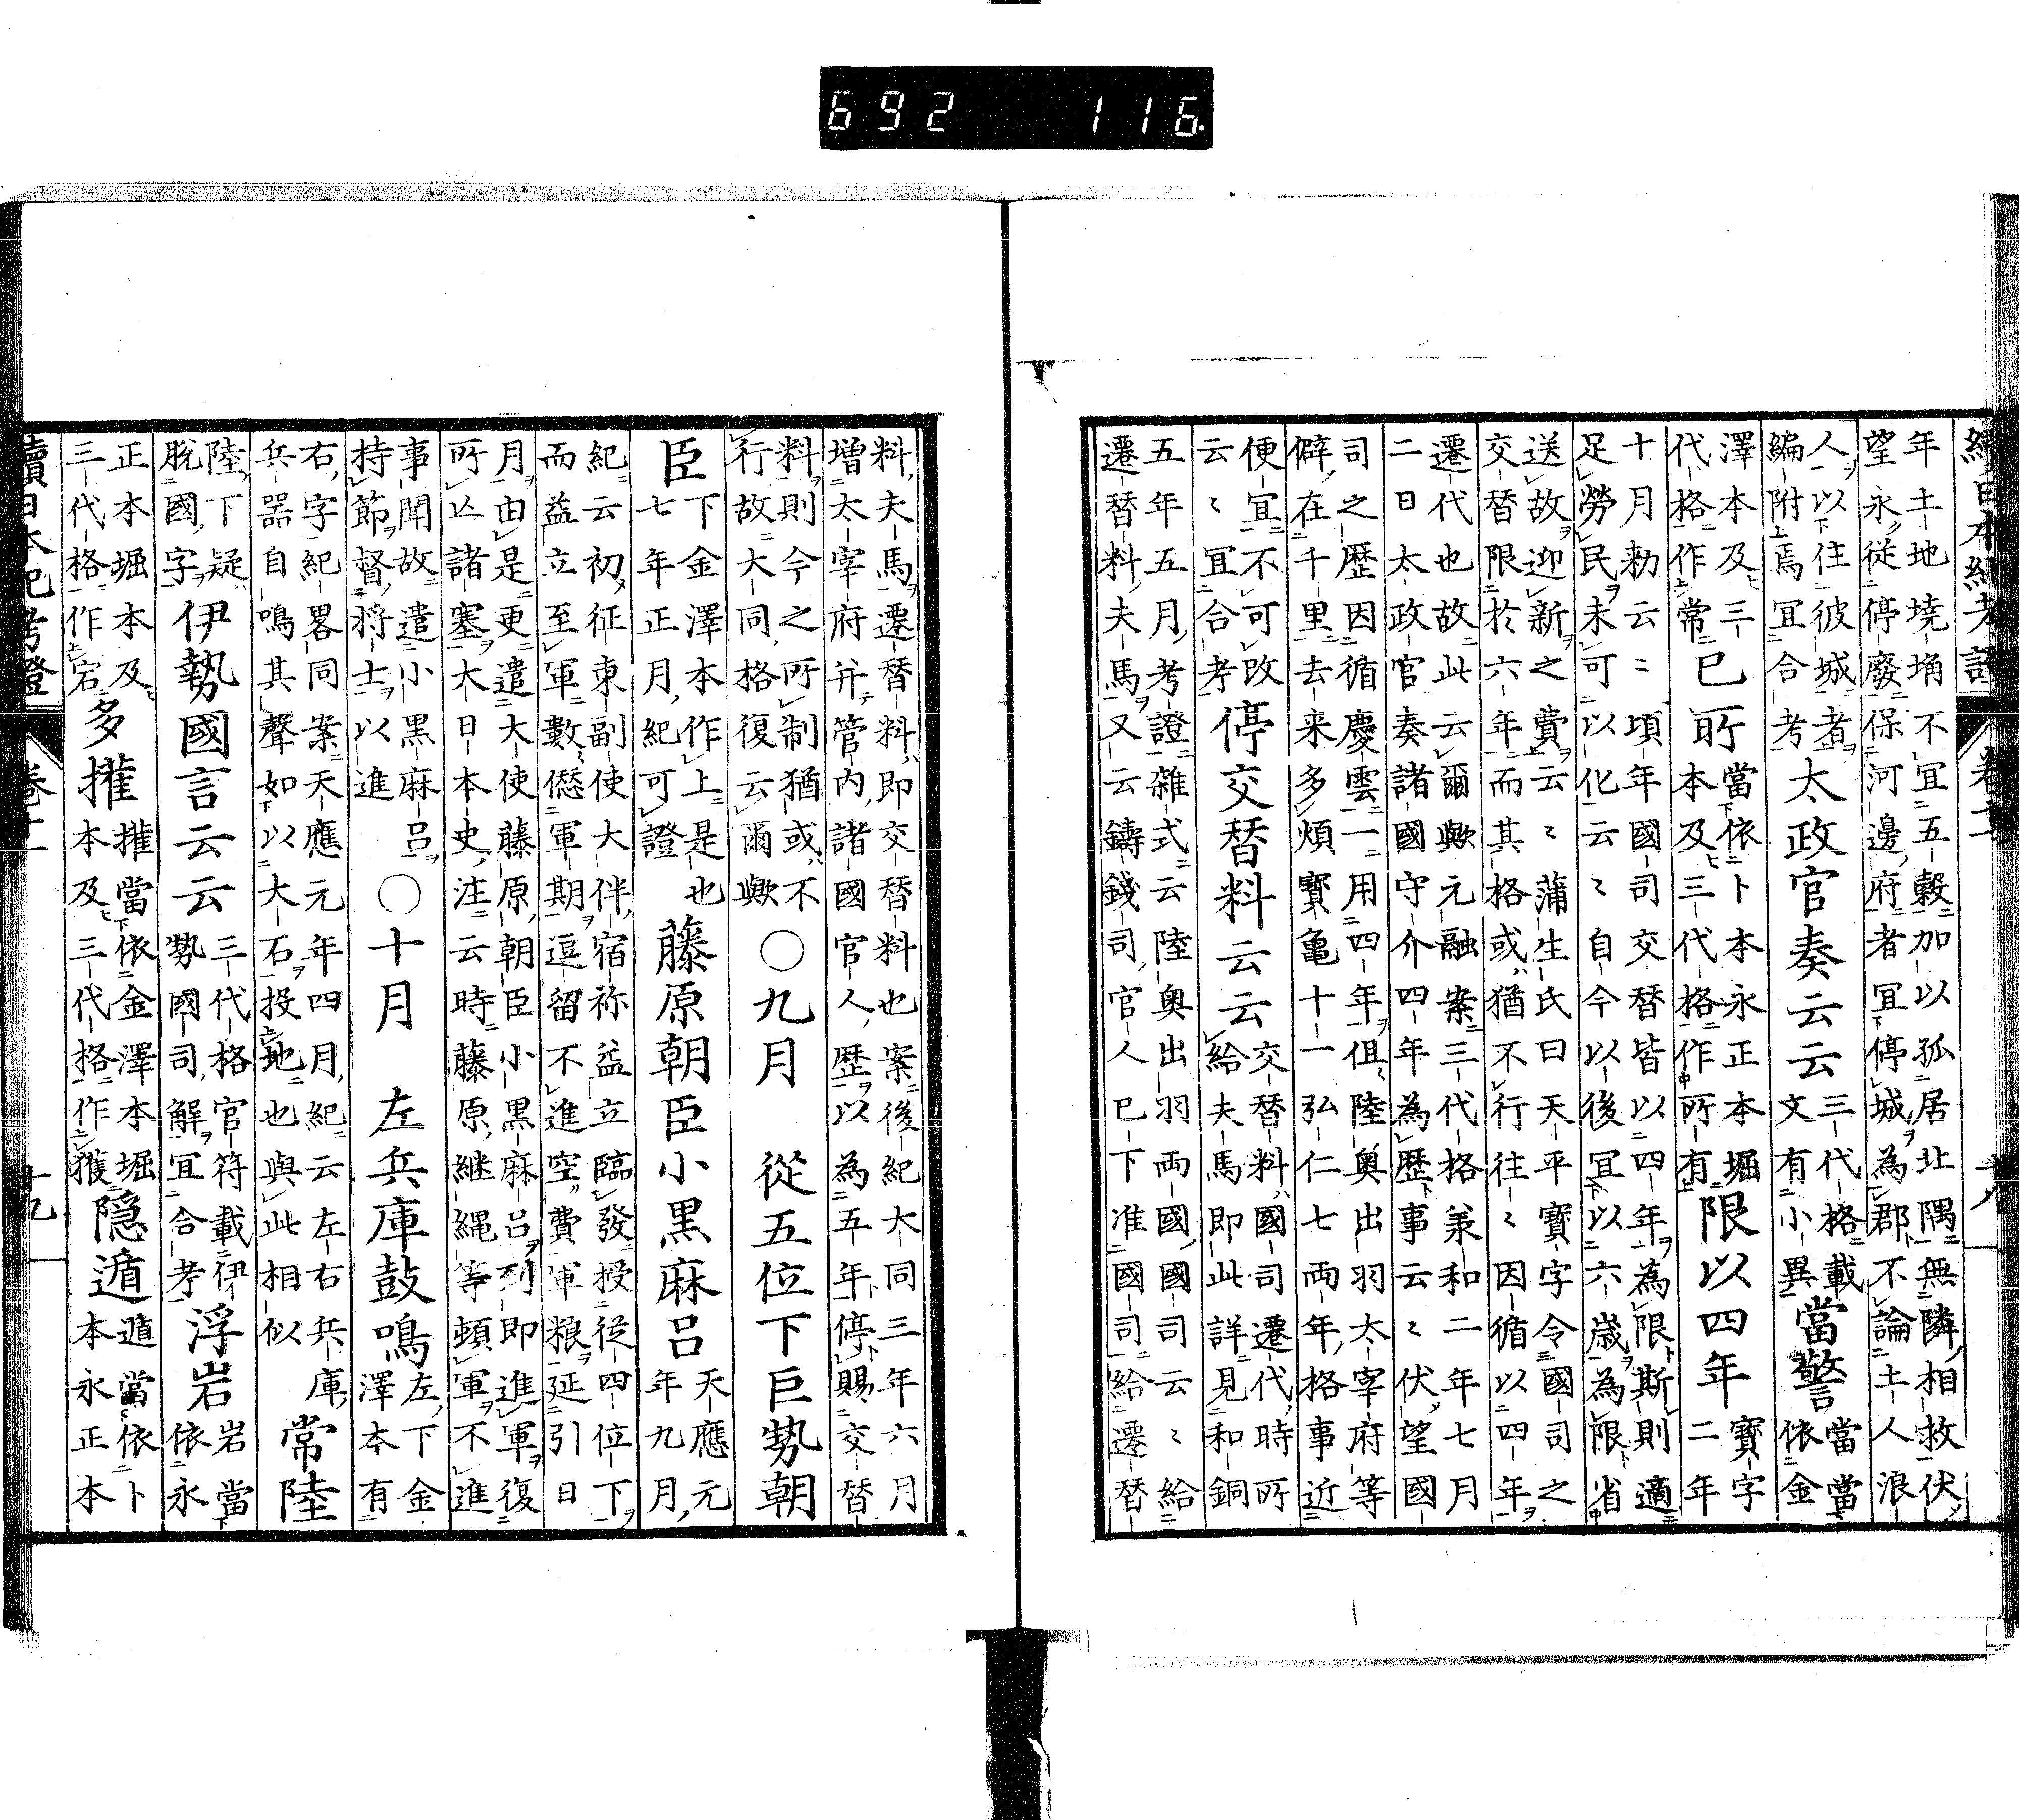 692 116
續日本紀考證 卷十一 十八
年土地塉埆不宜五穀加以孤居北隅無隣相救伏
望永從停廢保河邊府者宜停城為郡不論土人浪
人以住彼城者
編附焉宜合考
太政官奏云云
三代格載
文有小異
當警
當當
依金
澤本及三
代格作常
已所
當依卜本永正本堀
本及三代格作所有
限以四年
寶字
二年
十月勅云〻頃年國司交替皆以四年為限斯則適
足勞民未可以化云〻自今以後宜以六歲為限省
送故迎新之費云〻蒲生氏曰天平寶字令國司之
交替限於六年而其格或猶不行往〻因循以四年
遷代也故此云爾歟元融案三代格羕和二年七月
二日太政官奏諸國守介四年為歷事云〻伏望國
司之歷因循慶雲一用四年但陸奧出羽太宰府等
僻在千里去来多煩寶亀十一弘仁七兩年格事近
便宜不可改
云〻宜合考
停交替料云云
交替料國司遷代時所
給夫馬即此詳見和銅
五年五月考證雜式云陸奧出羽兩國國司云〻給
遷替料夫馬又云鑄錢司官人已下准國司給遷替
料夫馬遷替料即交替料也案後紀大同三年六月
增太宰府并管內諸國官人歷以為五年停賜交替
料則今之所制猶或不
行故大同格復云爾歟
○九月 從五位下巨勢朝
臣
下金澤本作上是也
七年正月紀可證
藤原朝臣小黒麻呂
天應元
年九月
紀云初征東副使大伴宿祢益立臨發授從四位下
而益立至軍數僁軍期逗留不進空費軍粮延引日
月由是更遣大使藤原朝臣小黒麻呂列即進軍復
所亾諸塞大日本史注云時藤原継縄等頓軍不進
事聞故遣小黒麻呂
持節督將士以進
○十月 左兵庫鼓鳴
左下金
澤本有
右字紀畧同案天應元年四月紀云左右兵庫
兵噐自鳴其聲如以大石投地也與此相似
常陸
陸下疑
脫國字
伊勢國言云云
三代格官符載伊
勢國司解宜合考
浮岩
岩當
依永
正本堀本及
三代格作宕
多㩲
㩲當依金澤本堀
本及三代格作獲
隠遁
遁當依卜
本永正本
續日本紀考證 卷十一 十九